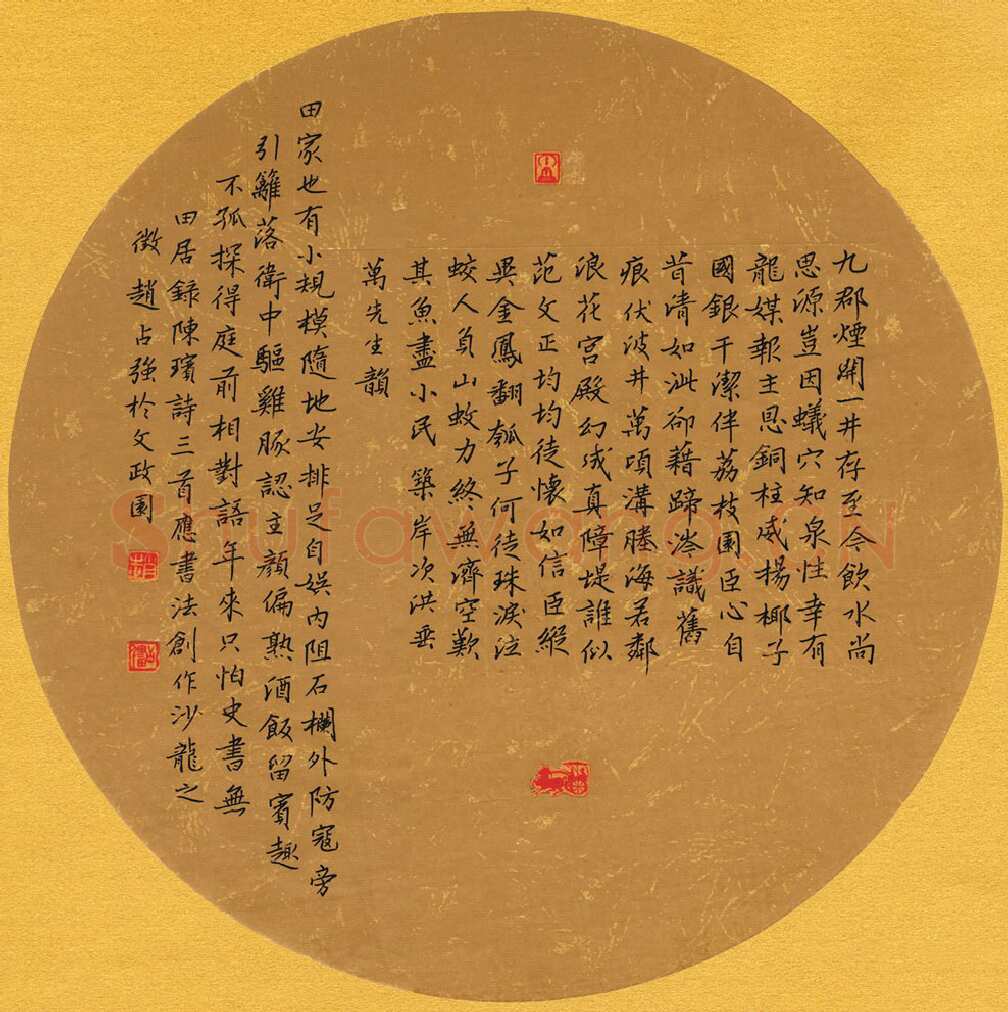 九郡煙開一井存至今飲水尚
思源豈因蟻穴知泉性幸有
龍媒報主恩銅柱威揚椰子
國銀干潔伴荔枝園臣心自
昔清如沘卻藉蹄涔識舊
痕伏波井萬頃溝塍海若鄰
浪花宮殿幻成真障堤誰似
范文正均均徒懷如信臣縱
異金鳳翻瓠子何徒珠淚泣
蛟人負山蚊力終無濟空歎
其魚盡小民築岸次洪垂
萬先生韻
田家也有小規模隨地安排足自娛內阻石欄外防寇旁
引籬落衛中驅雞豚認主顏偏熟酒飯留賓趣
不孤探得庭前相對語年來只怕史書無
田居錄陳璸詩三首應書法創作沙龍之
徵趙占強於文政園
Shufawang.CN